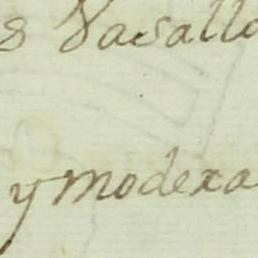 s Vasallo
y modera